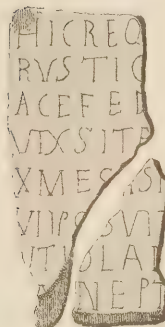 HICREQ
RVSTIC
ACEFED
VIXSITP
XMES
VIIPO SVIT
VTI OLA
NEPT